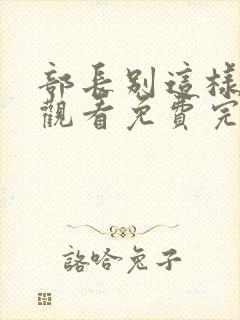 部長別這樣
觀看免費完
詻哈兔子